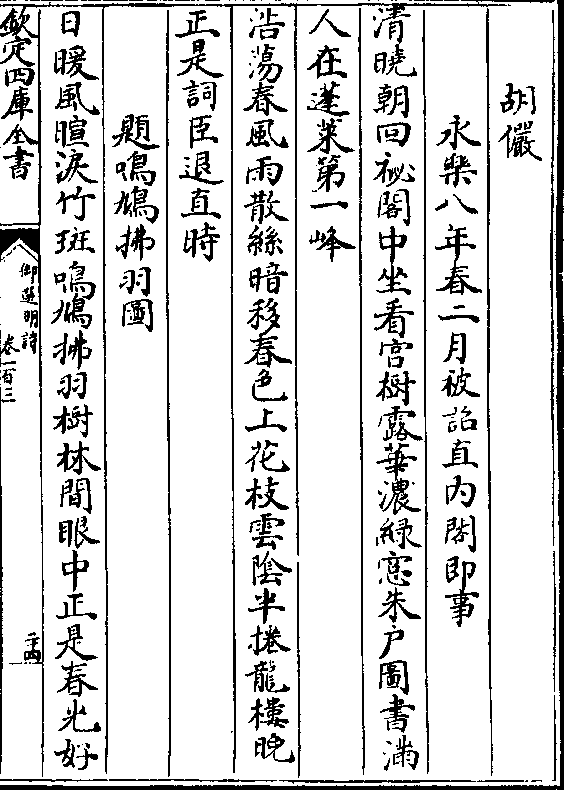 胡儼
永樂八年春二月被詔直內閣即事
清曉朝回祕閣中坐看宮樹露華濃綠窓朱戶圖書滿
人在蓬萊第一峰
浩蕩春風雨散絲暗移春色上花枝雲陰半捲龍樓晚
正是詞臣退直時
題鳴鳩拂羽圖
日暖風暄淚竹斑鳴鳩拂羽樹林間眼中正是春光好
欽定四庫全書
御選明詩
卷一百三
二十四